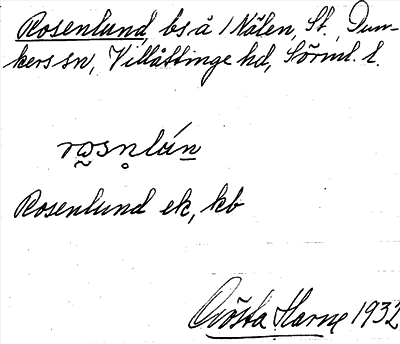 Rosenlund, bs å 1 Nälen, St. Dun-
kers sn, Villåttinge hd, Sörml. l.
Rosenlund ek, kb
Gösta Harne 1932